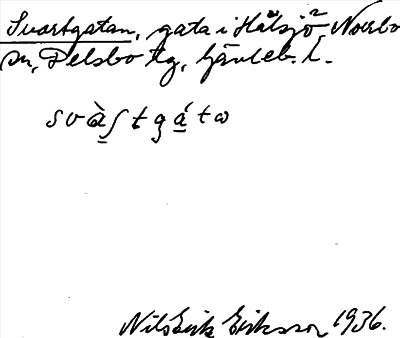 Svartgatan, gata i Hålsjö, Norrbo
sn, Delsbo tg, Gävleb. l.
svàʃtgátω
Nils Erik Eriksson 1936.